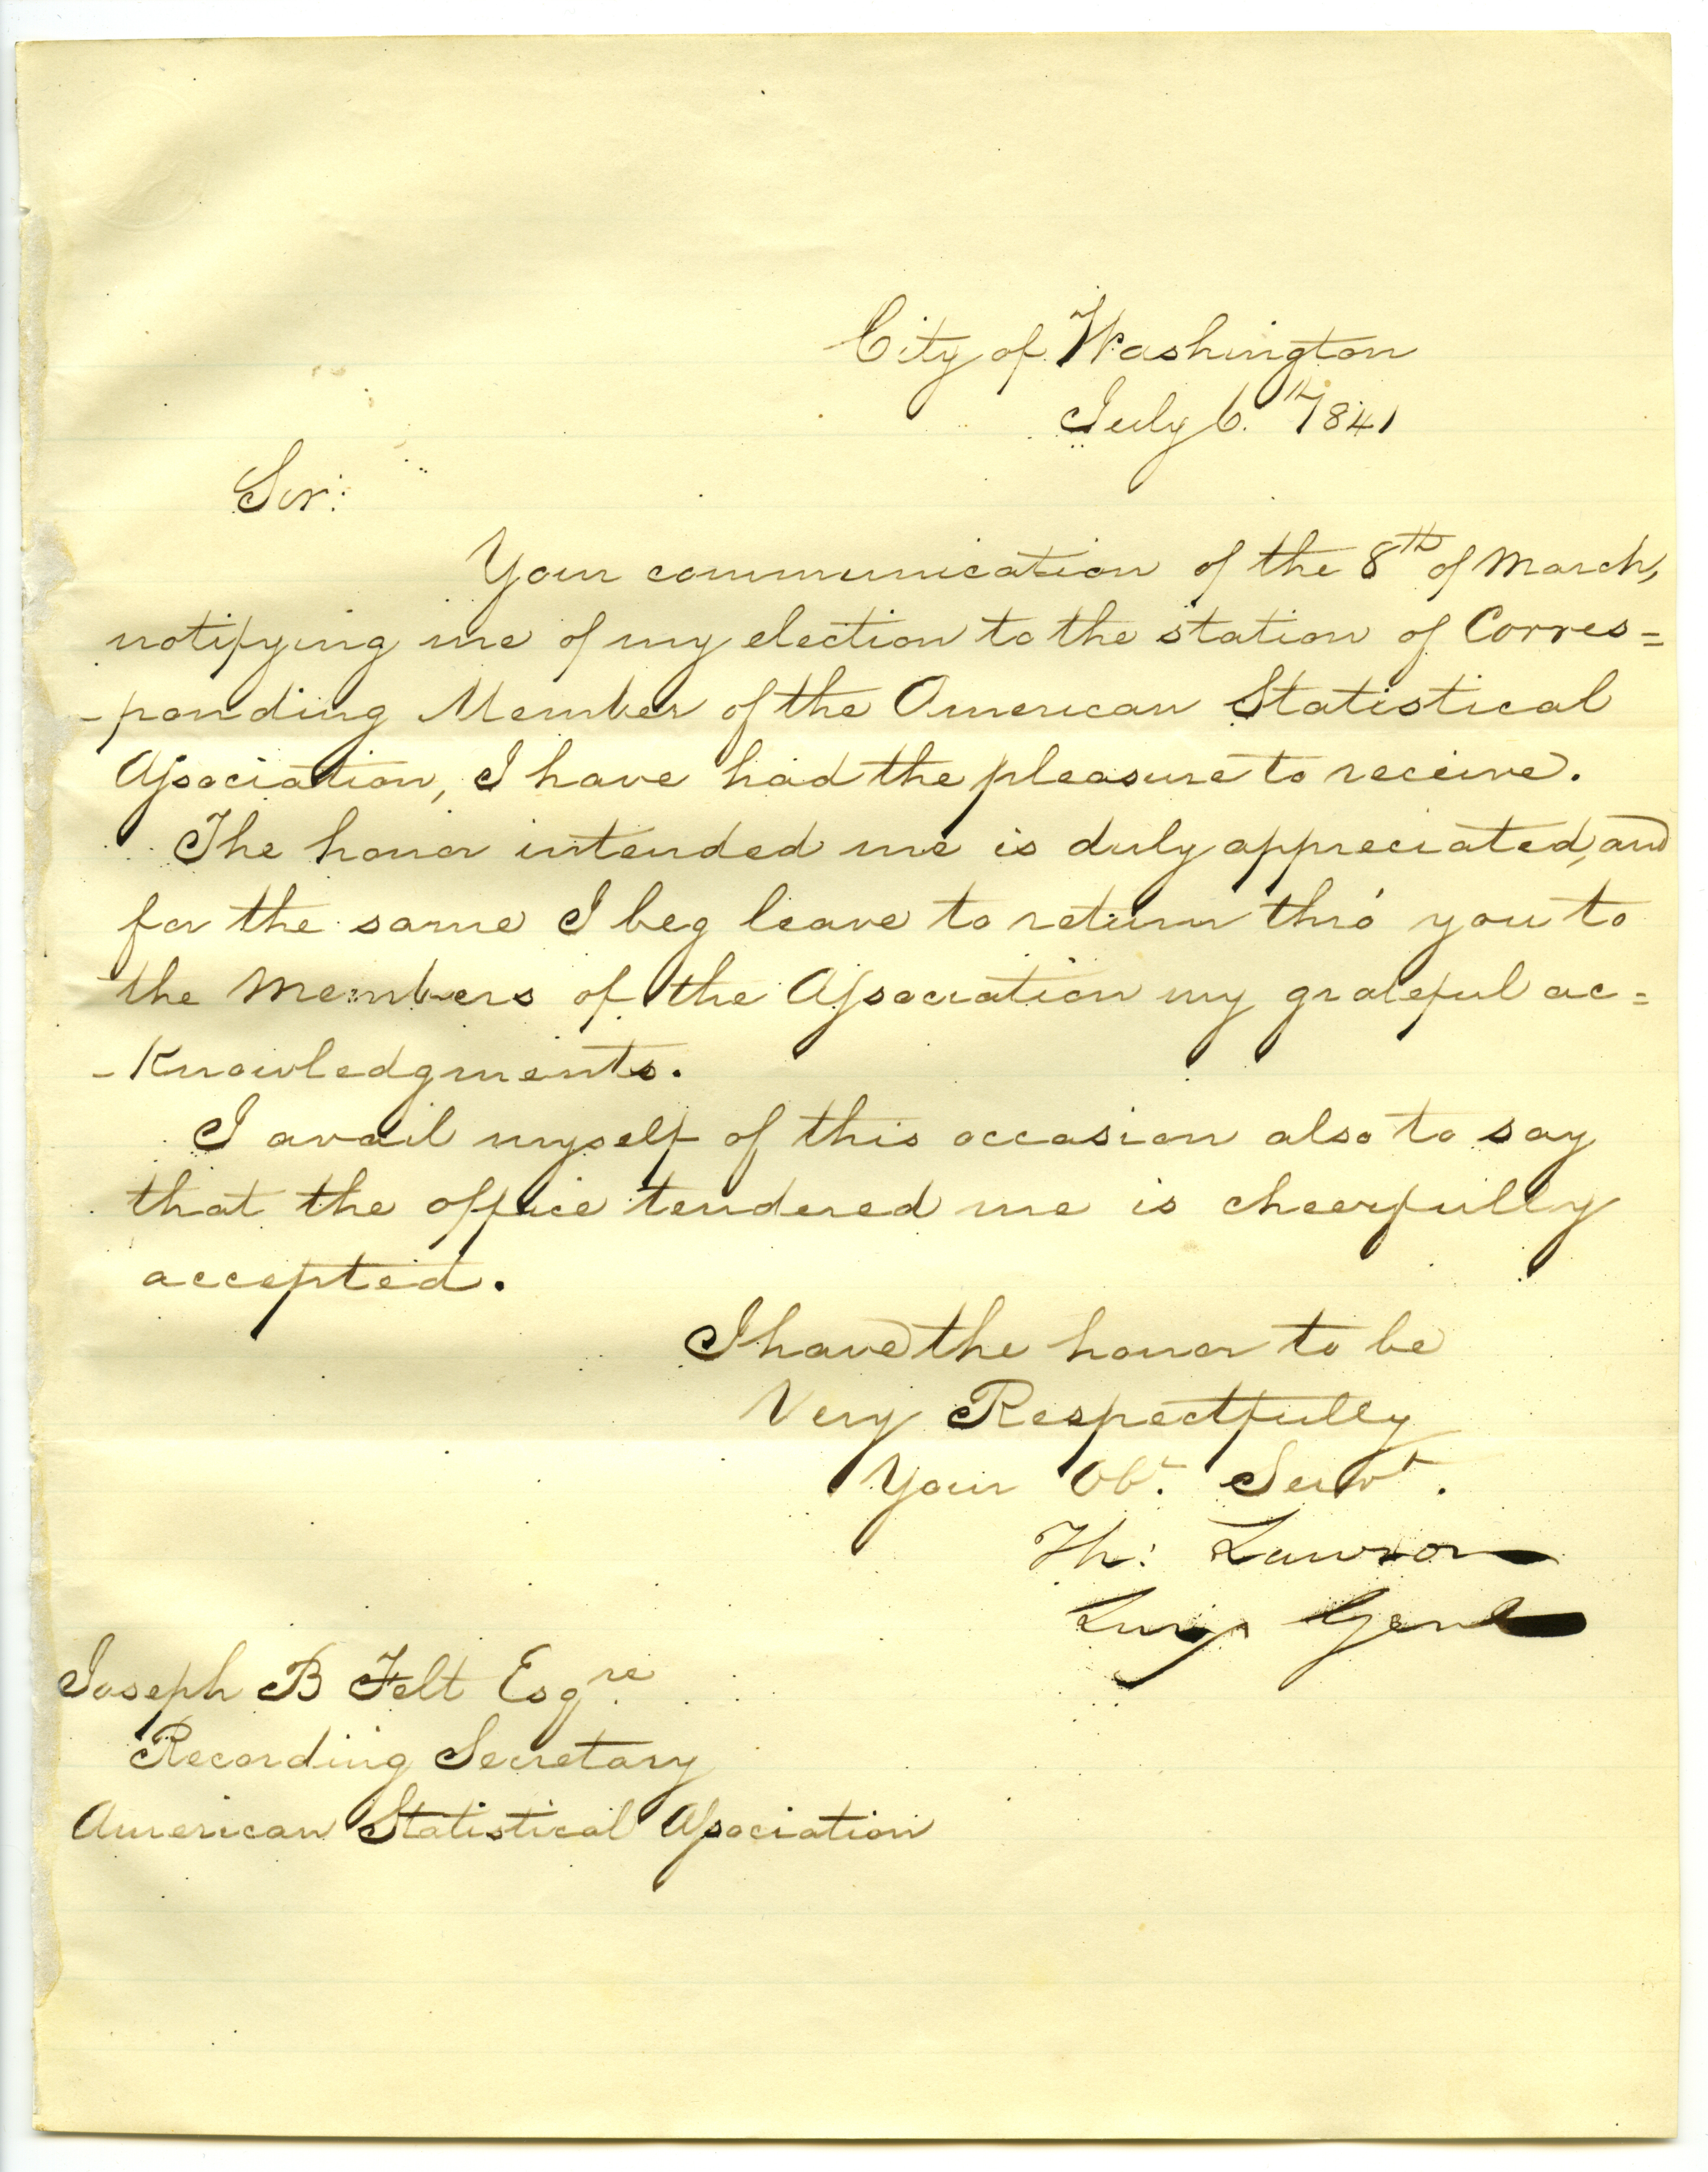 City of Washington
July 6.th 1841
Sir:
Your communication of the 8th of March,
notifying me of my election to the station of Corres=
-ponding Member of the American Statistical
Association, I have had the pleasure to receive.
The honor intended me is duly appreciated, and
for the same I beg leave to return thro' you to
the Members of the Association my grateful ac=
-knowledgments.
I avail myself of this occasion also to say
that the office tendered me is cheerfully
accepted.
I have the honor to be
Very Respectfully
Your Obt. Servt.
Th: Lawson
Surg Genl
Joseph B Felt Esqre
Recording Secretary
American Statistical Association